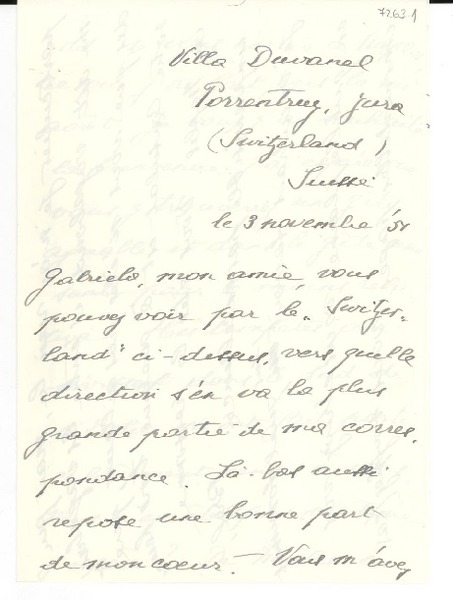 7263-1
Villa Duvanel
Porrentruy, Jura
(Switzerland)
Suisse
le 3 novembre '51
Gabriela, mon amie, vous
pouvez voir par le "Switzer-
land" ci-dessus, vers quelle
direction s'en va la plus
grande partie de ma corres,
pondance. Là-bas aussi
repose une bonne part
de mon coeur. - Vous m'avez